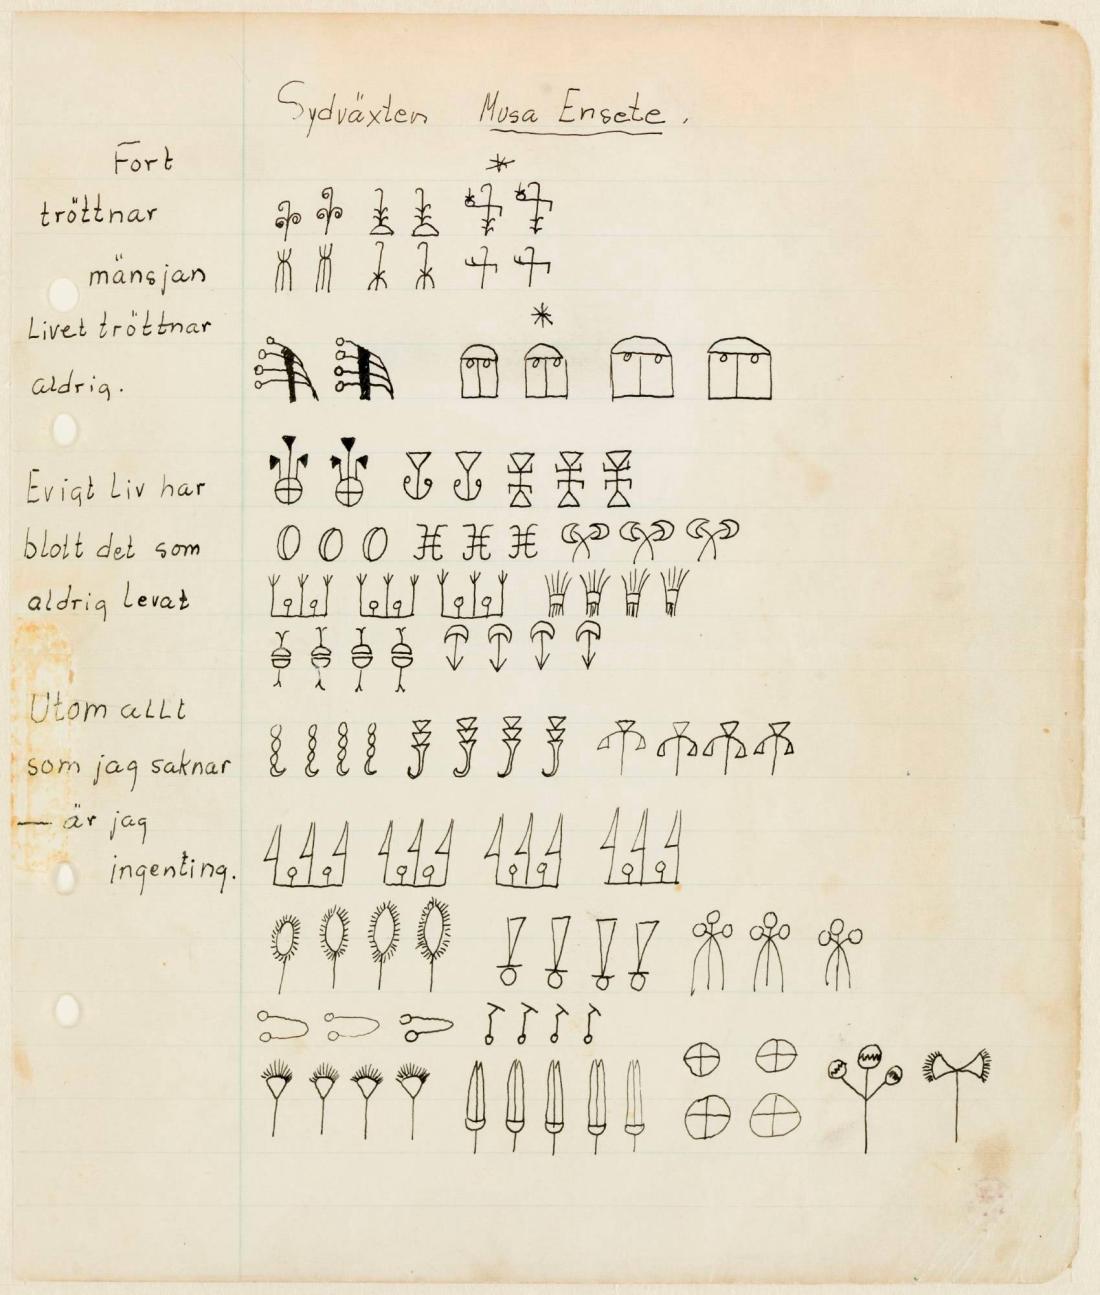 Sydväxten Musa Ensete.
Fort
tröttnar
mänsjan
Livet tröttnar
aldrig.
Evigt Liv har
blott det som
aldrig levat
Utom allt
som jag saknar
— är jag
ingenting.